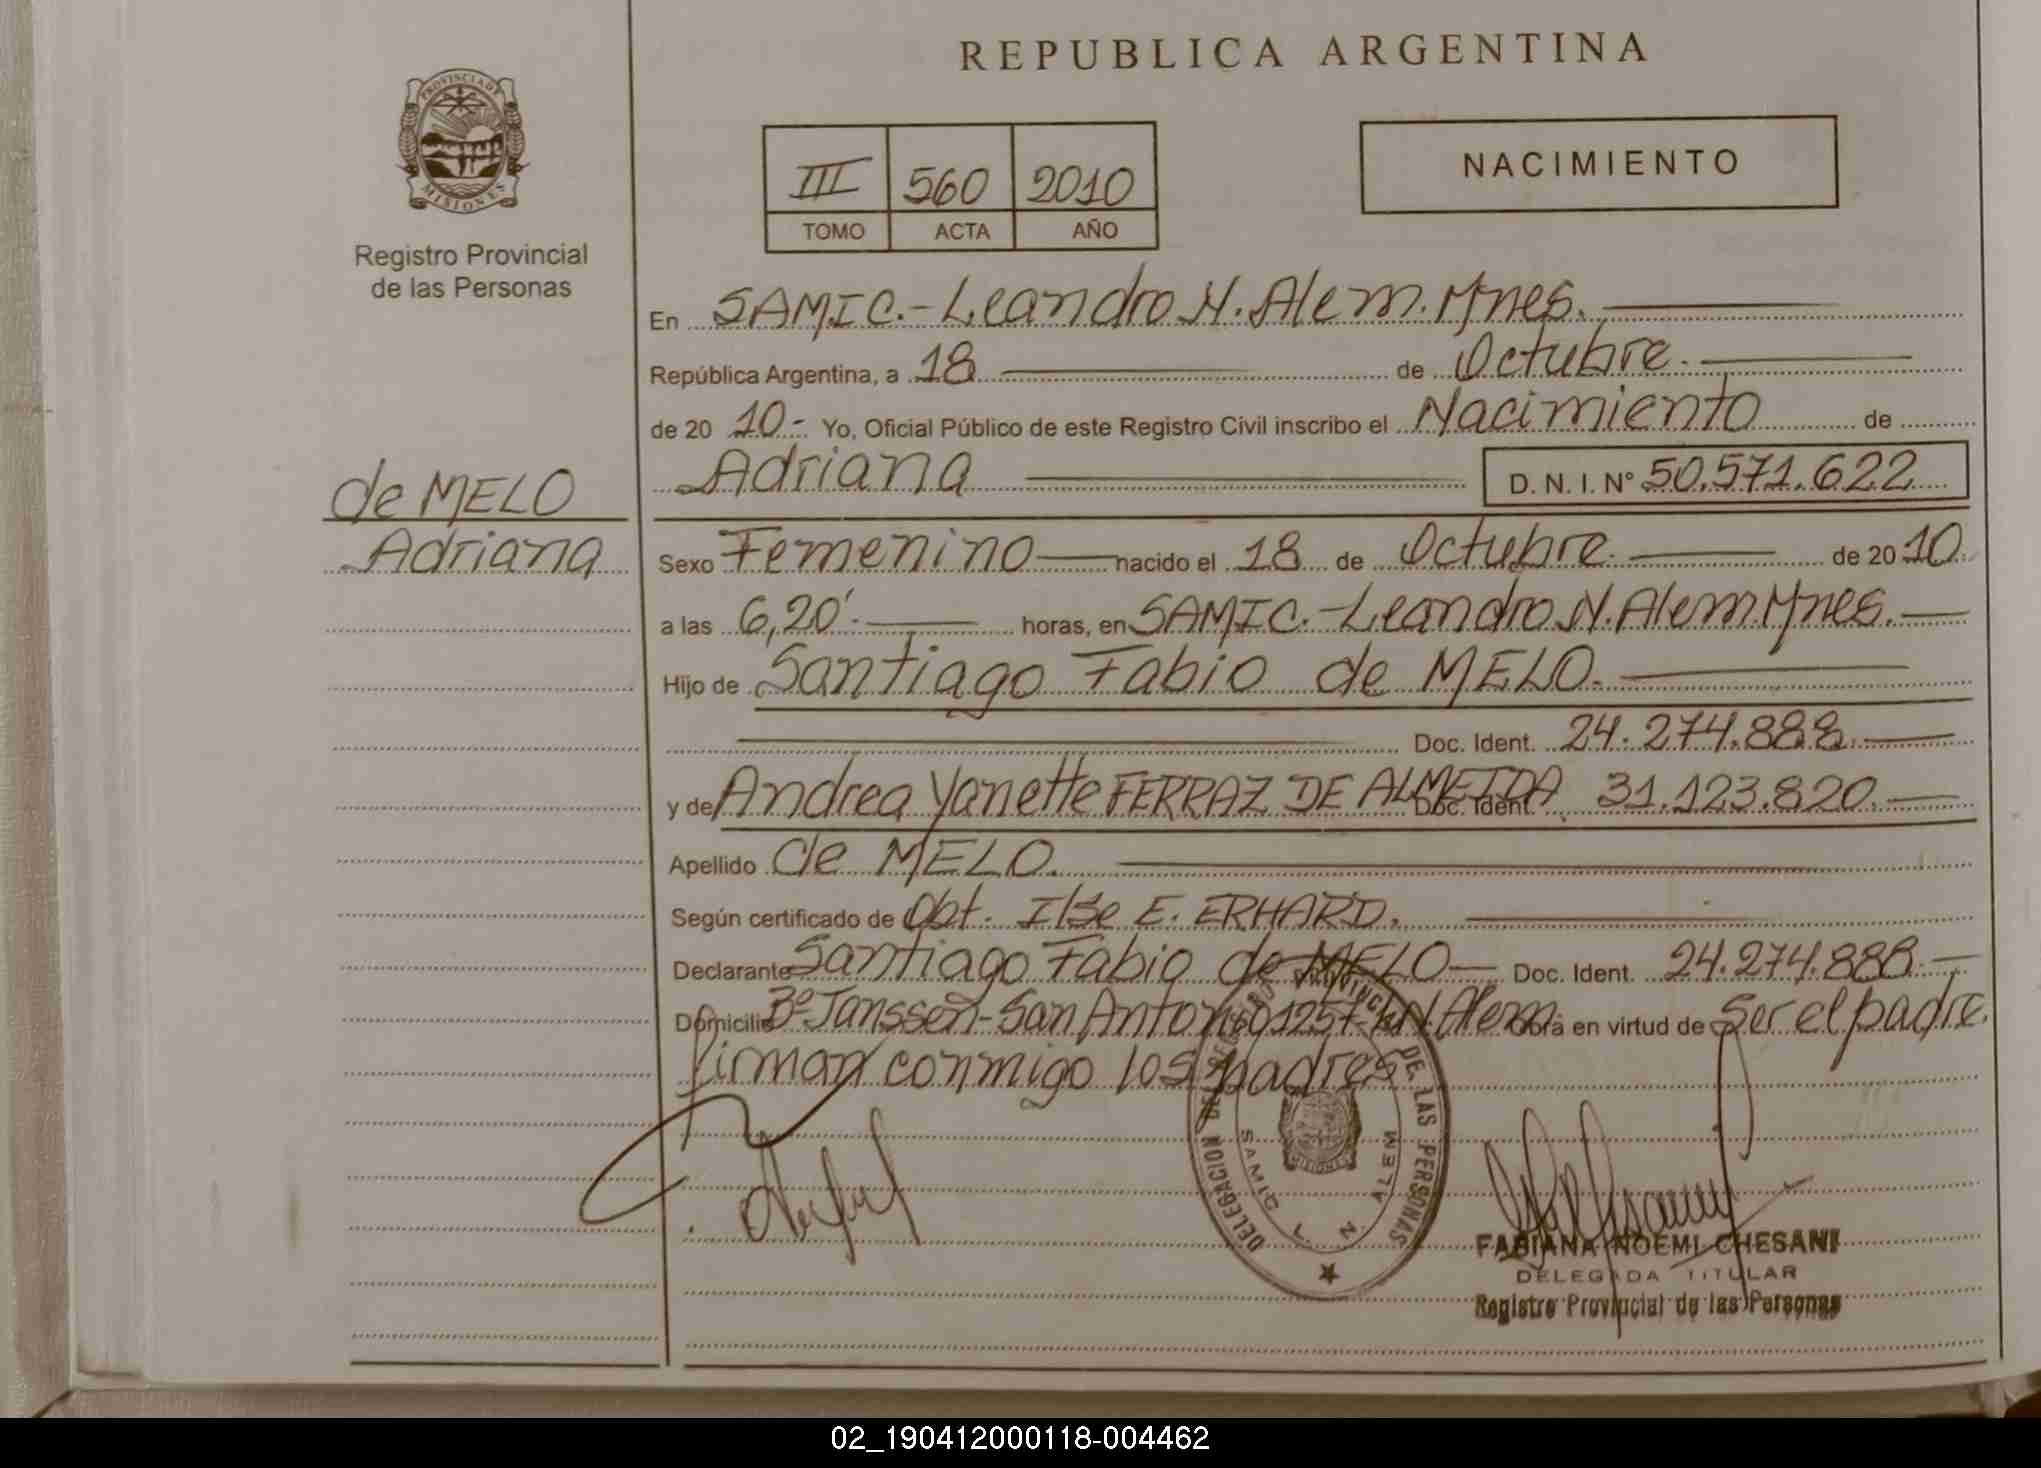 REPUBLICA ARGENTINA
PROVINCIA DE MISIONES
Registro Provincial
de las Personas
III 560 2010
TOMO ACTA AÑO
NACIMIENTO
En SAMIC.-Leandro N. Alem. Mnes.
República Argentina, a 18 de Octubre.
de 20 10.- Yo, Oficial Público de este Registro Civil inscribo el Nacimiento de
Adriana D. N. I. N° 50.571.622
de MELO
Adriana
Sexo Femenino nacido el 18 de Octubre. de 20 10.
a las 6,20'. horas, en SAMIC.-Leandro N. Alem Mnes.
Hijo de Santiago Fabio de MELO.
Doc. Ident. 24.274.888.
y de Andrea Yanette FERRAZ DE ALMEIDA Doc. Ident. 31.123.820.
Apellido de MELO.
Según certificado de Obt. Ilse E. ERHARD.
Declarante Santiago Fabio de MELO Doc. Ident. 24.274.888.
Domicilio B° Janssen-San Antonio 1257-L.N.Alem Obra en virtud de Ser el padre.
firman conmigo los padres
DELEGACION DEL REGISTRO PROVINCIAL DE LAS PERSONAS
SAMIC L. N. ALEM
MISIONES
FABIANA NOEMI CHESANI
DELEGADA TITULAR
Registro Provincial de las Personas
02_190412000118-004462